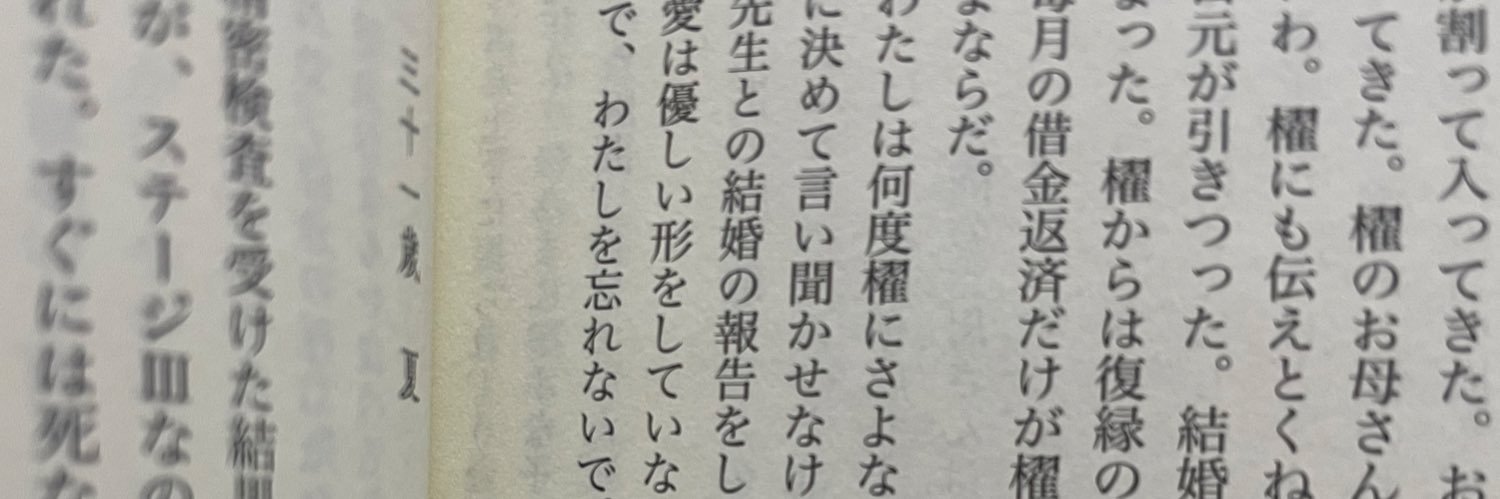 割って入ってきた。お
てきた。櫂のお母さん
わ。櫂にも伝えとくね
元が引きつった。結婚
った。櫂からは復縁の
毎月の借金返済だけが櫂
よならだ。
わたしは何度櫂にさよな
に決めて言い聞かせなけ
先生との結婚の報告をし
愛は優しい形をしていな
で、わたしを忘れないで
三十一歳 夏
精密検査を受けた結果
が、ステージⅢなの
れた。すぐには死な